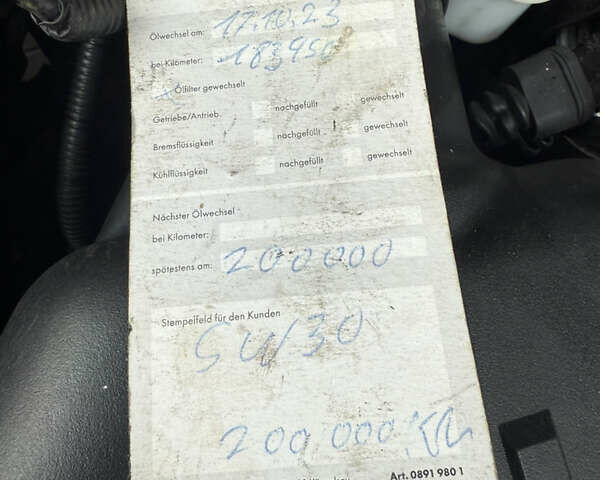 Ölwechsel am: 17.10.23
bei Kilometer: 183950
Ölfilter gewechselt
Getriebe/Antrieb. nachgefüllt gewechselt
Bremsflüssigkeit nachgefüllt gewechselt
Kühlflüssigkeit nachgefüllt gewechselt
Nächster Ölwechsel
bei Kilometer:
spätestens am: 200000
Stempelfeld für den Kunden
5W30
200.000 KM
Art. 0891 980 1